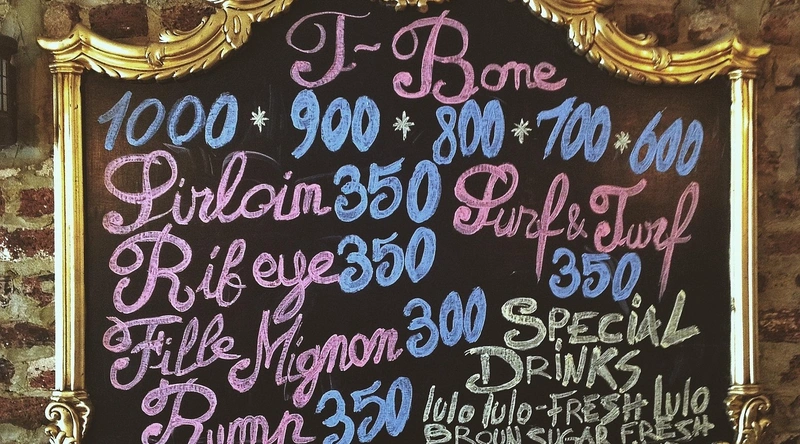 T-Bone
1000 * 900 * 800 * 700 * 600
Sirloin 350
Surf & Turf
350
Rib eye 350
Fille Mignon 300
Rump 350
SPECIAL
DRINKS
lulo lulo-FRESH lulo
BROUN SUGAR FRESH